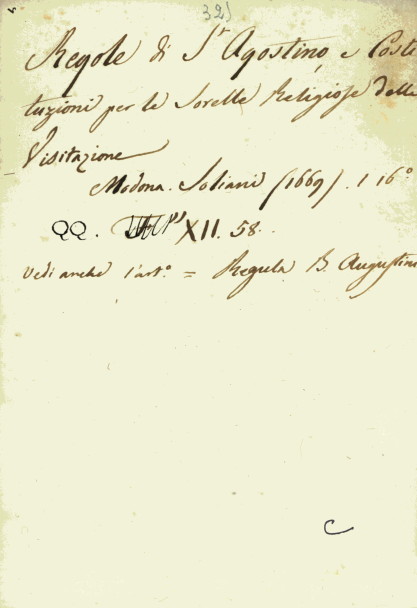 32)
Regole di S.r Agostino e Costi
tuzioni per le Sorelle Religiose della
Visitazione
Modona. Soliani (1669). 1 16°
QQ. XII. 58.
Vedi anche l'art.° = Regula B. Augustini
C